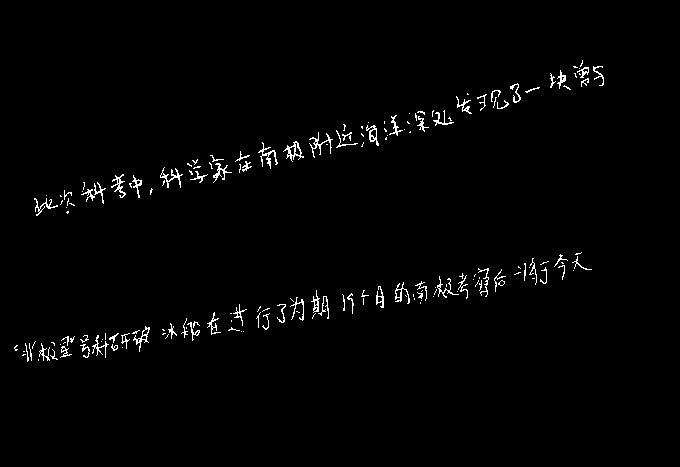 此次科考中,科学家在南极附近海洋深处发现了一块曾与
“北极星号科研破冰船在进行了为期19个月的南极考察后一行今天